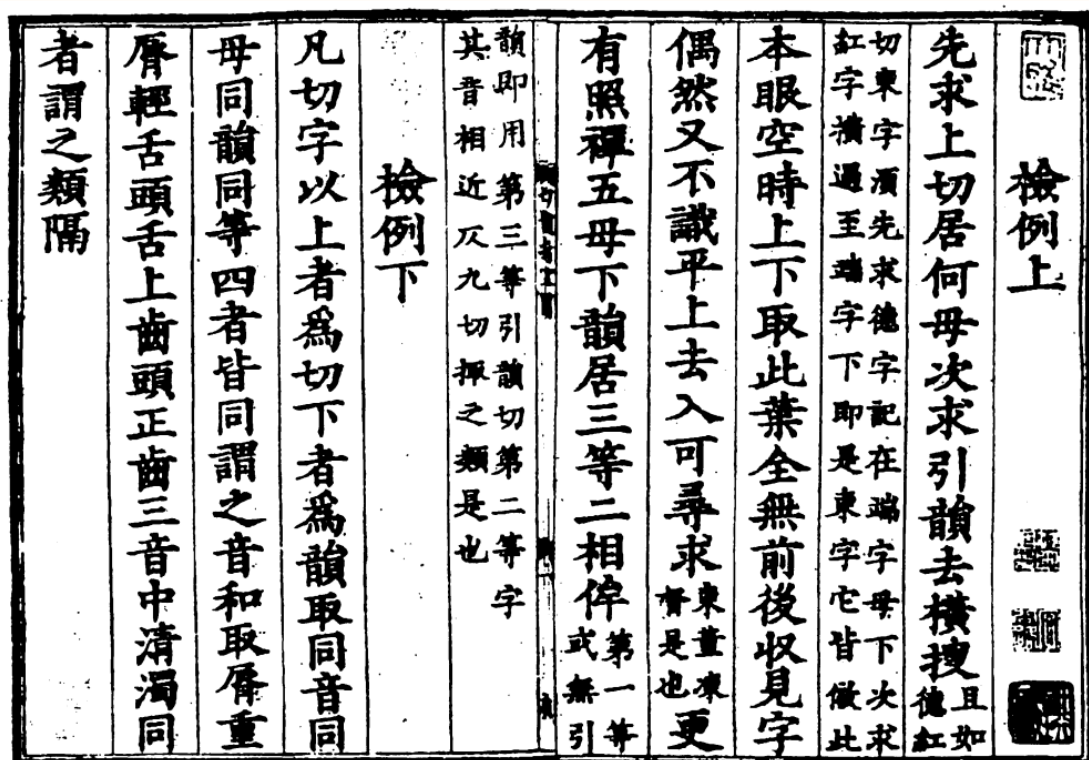 檢例上
先求上切居何母次求引韻去橫搜且如德紅
切東字湏先求德字記在端字母下次求
紅字橫過至端字下即是東字它皆倣此
本眼空時上下取此葉全無前後収見字
偶然又不識平上去入可尋求東董凍督是也更
有照禪五母下韻居三等二相侔第一等或無引
韻即用第三等引韻切第二等字
其音相近仄九切掫之類是也
檢例下
凡切字以上者爲切下者爲韻取同音同
母同韻同等四者皆同謂之音和取脣重
脣輕舌頭舌上齒頭正齒三音中清濁同
者謂之類隔